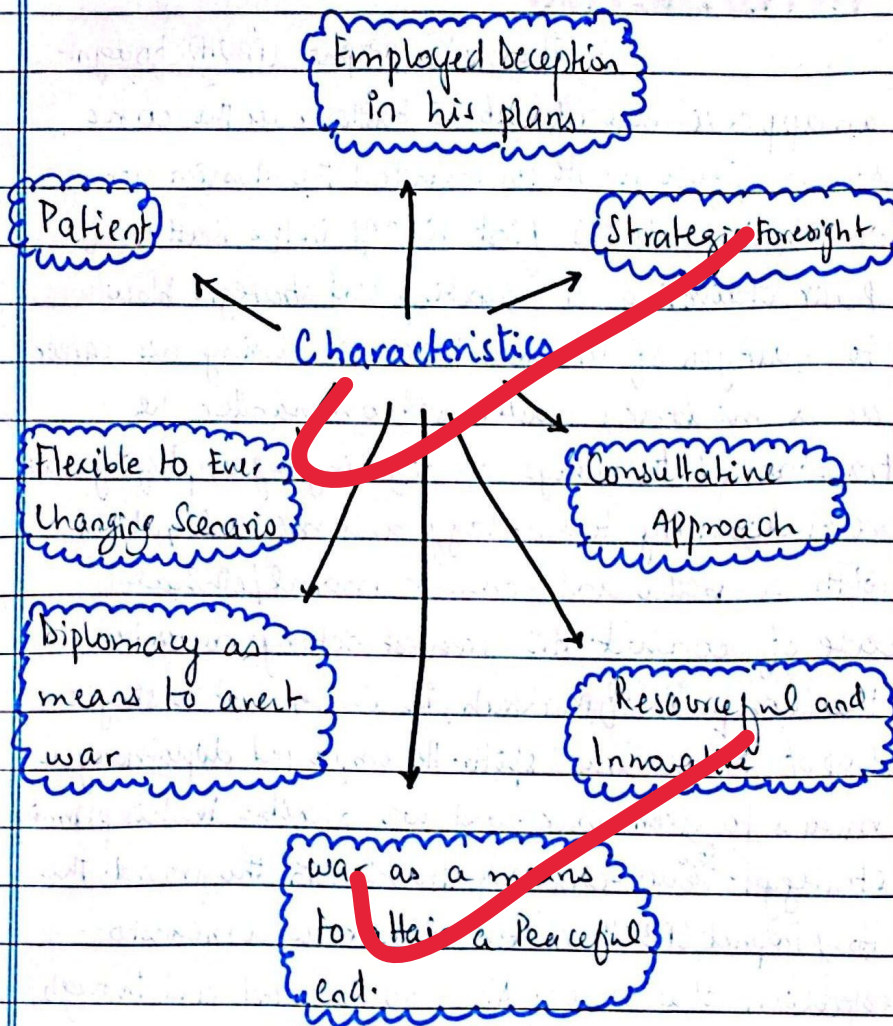 Employed Deception
in his plans
Patient
Strategic Foresight
Characteristics
Flexible to Ever
Changing Scenario
Consultative
Approach
Diplomacy as
means to avert
war
Resourceful and
Innovative
war as a means
to attain a Peaceful
end.